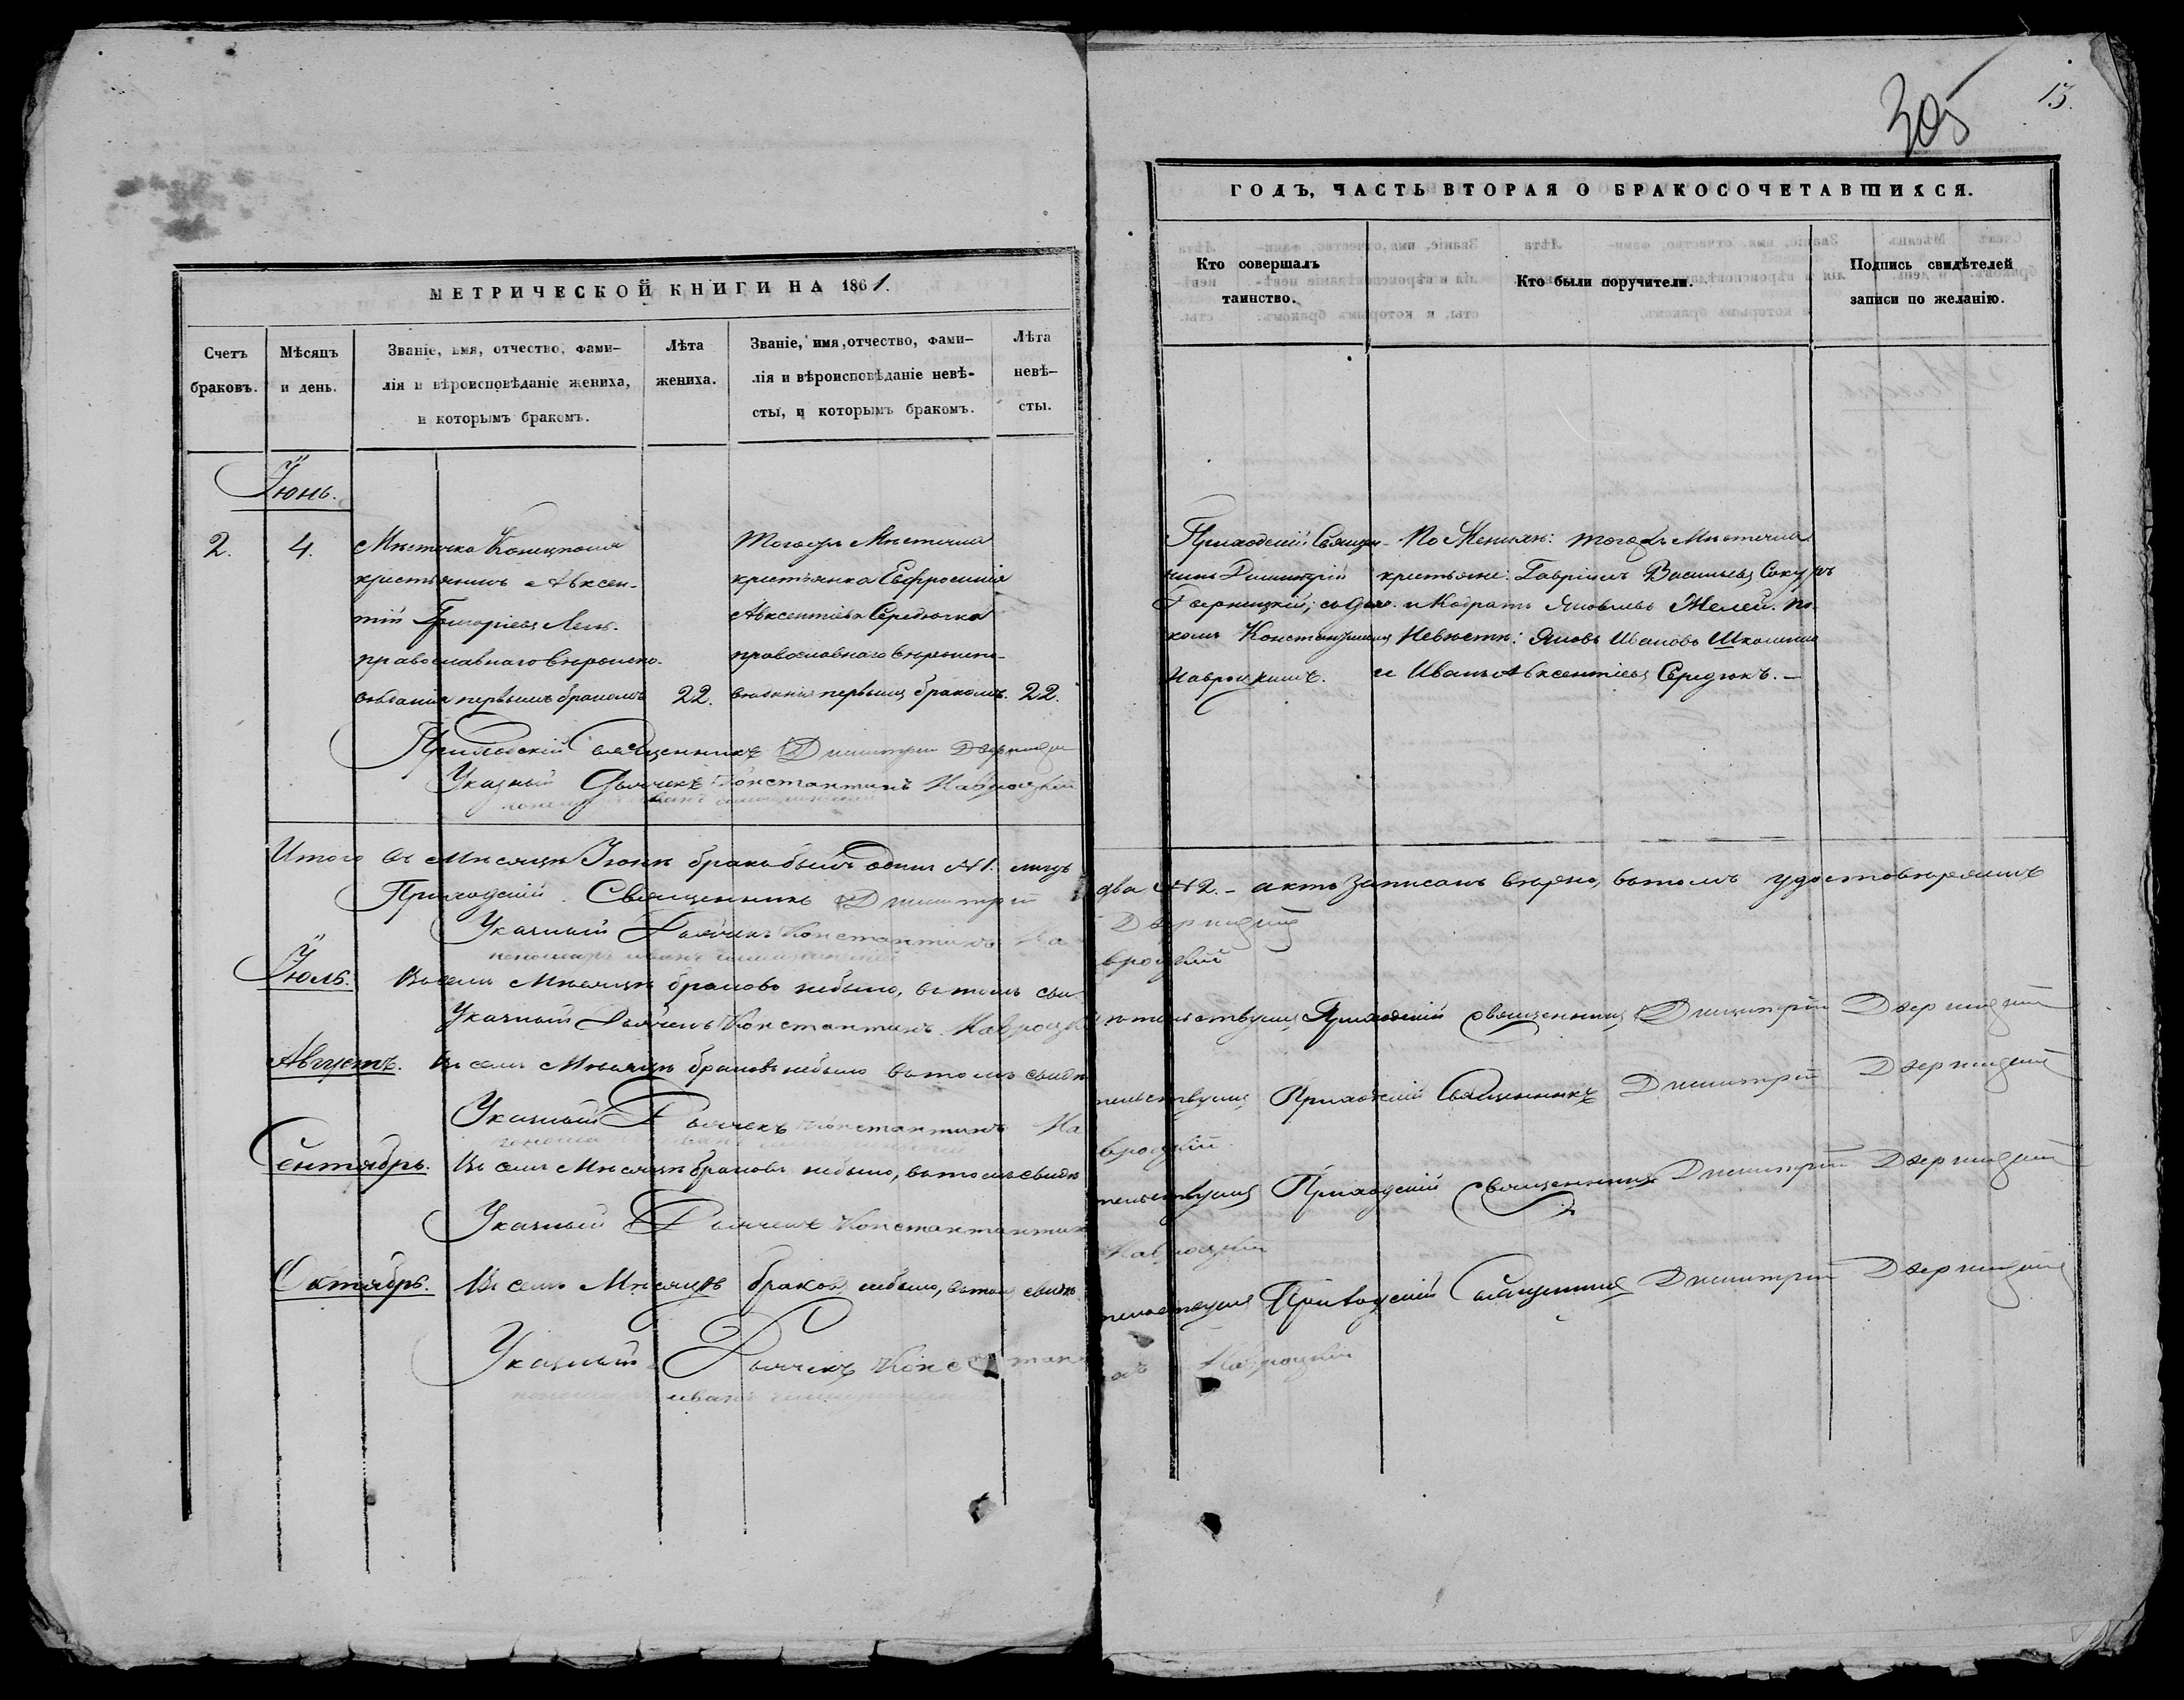 305
13.
МЕТРИЧЕСКОЙ КНИГИ НА 1861.
ГОДЪ, ЧАСТЬ ВТОРАЯ О БРАКОСОЧЕТАВШИХСЯ.
Счетъ
браковъ.
Мѣсяцъ
и день.
Званіе, имя, отчество, фами-
лія и вѣроисповѣданіе жениха,
и которымъ бракомъ.
Лѣта
жениха.
Званіе, имя, отчество, фами-
лія и вѣроисповѣданіе невѣ-
сты, и которымъ бракомъ.
Лѣта
невѣ-
сты.
Кто совершалъ
таинство.
Кто были поручители.
Подпись свидѣтелей
записи по желанію.
Іюнь.
2.
4.
Мѣстечка
крестьянинъ Авксен-
тій Григоріевъ
православнаго вѣроиспо-
вѣданія первымъ бракомъ
22.
Тогожъ Мѣстечка
крестьянка Евфросинія
Авксентіева Середючка
православнаго вѣроиспо-
вѣданія первымъ бракомъ.
22.
Приходскій Священ-
никъ Димитрій
комъ Константиномъ
Навроцкимъ.
По Женихѣ: тогожъ Мѣстечка
крестьяне: Гавріилъ Васильевъ
и Кодратъ Яковлевъ По
Невѣстѣ: Яковъ Ивановъ
и Иванъ Авксентіевъ Середюкъ.
Приходскій Священникъ Димитрій
Указный Дьячекъ Константинъ Навроцкій
Итого въ Мѣсяцѣ Іюнѣ брака былъ одинъ №1. лицъ два №2. – актъ записанъ вѣрно, въ томъ удостовѣряемъ
Приходскій Священникъ Димитрій
Указный Дьячекъ Константинъ Навроцкій
Іюль. Въ семъ Мѣсяцѣ браковъ небыло, въ томъ свидѣтельствуемъ Приходскій Священникъ Димитрій
Указный Дьячекъ Константинъ Навроцкій
Августъ. Въ семъ Мѣсяцѣ браковъ небыло въ томъ свидѣтельствуемъ Приходскій Священникъ Димитрій
Указный Дьячекъ Константинъ Навроцкій
Сентябрь. Въ семъ Мѣсяцѣ браковъ небыло, въ томъ свидѣтельствуемъ Приходскій Священникъ Димитрій
Указный Дьячекъ Навроцкій
Октябрь. Въ семъ Мѣсяцѣ браковъ небыло, въ томъ свидѣтельствуемъ Приходскій Священникъ Димитрій
Указный Дьячекъ Навроцкій